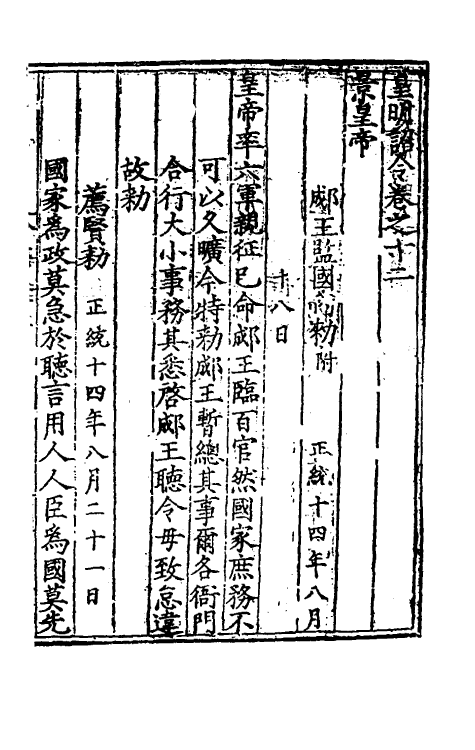 皇明詔令卷之十二
景皇帝
郕王監國勑附 正統十四年八月
十八日
皇帝率六軍親征已命郕王臨百官然國家庶務不
可以久曠今特勑郕王暫總其事爾各衙門
合行大小事務其悉啓郕王聽令毋致怠違
故勑
薦賢勑 正統十四年八月二十一日
國家為政莫急於聽言用人人臣為國莫先